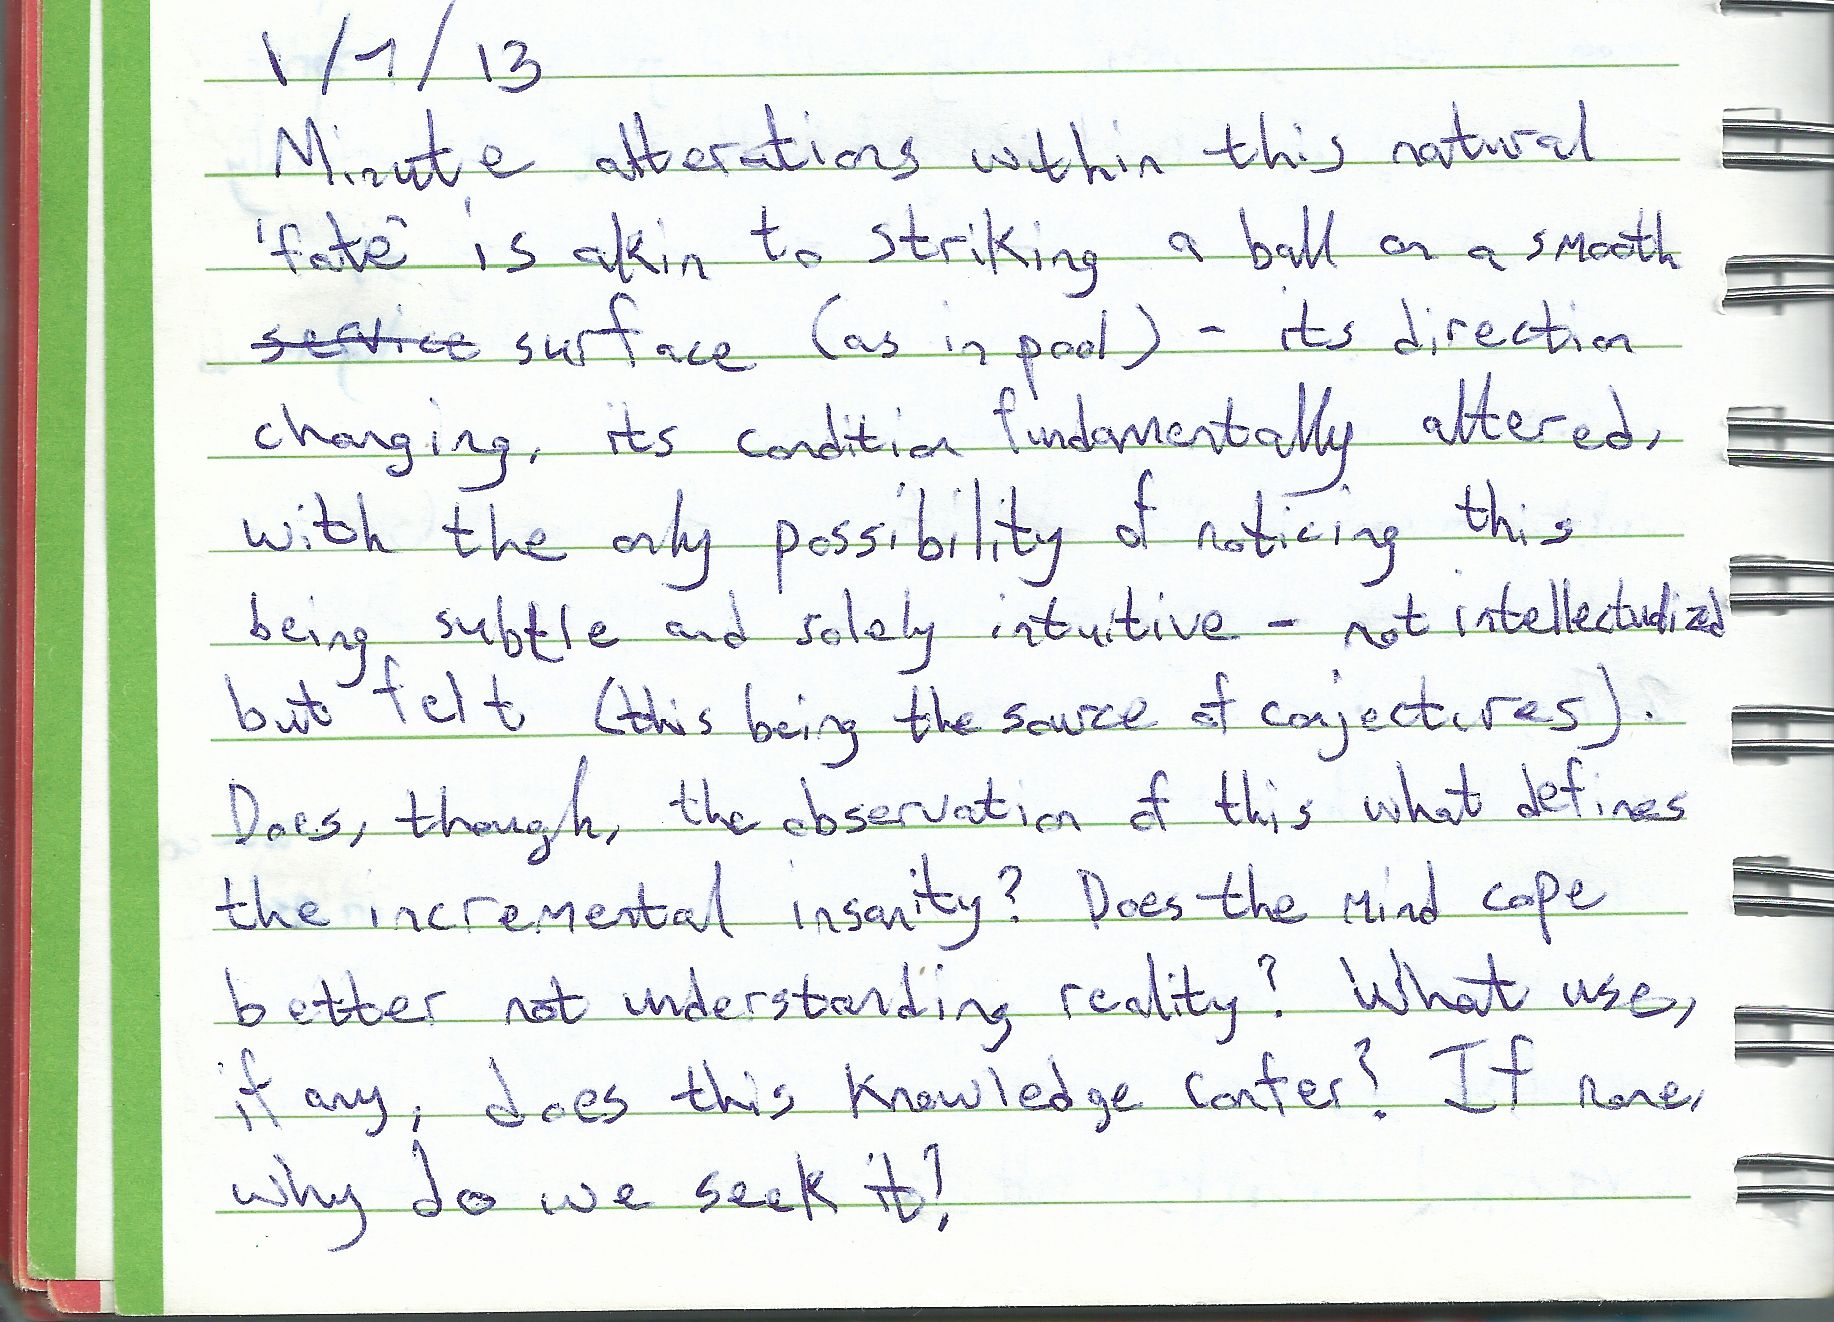 1/1/13
Minute alterations within this natural
'fate' is akin to striking a ball on a smooth
service surface (as in pool) - its direction
changing, its condition fundamentally altered,
with the only possibility of noticing this
being subtle and solely intuitive - not intellectualized
but felt (this being the source of conjectures).
Does, though, the observation of this what defines
the incremental insanity? Does the mind cope
better not understanding reality? What use,
if any, does this knowledge confer? If none,
why do we seek it?